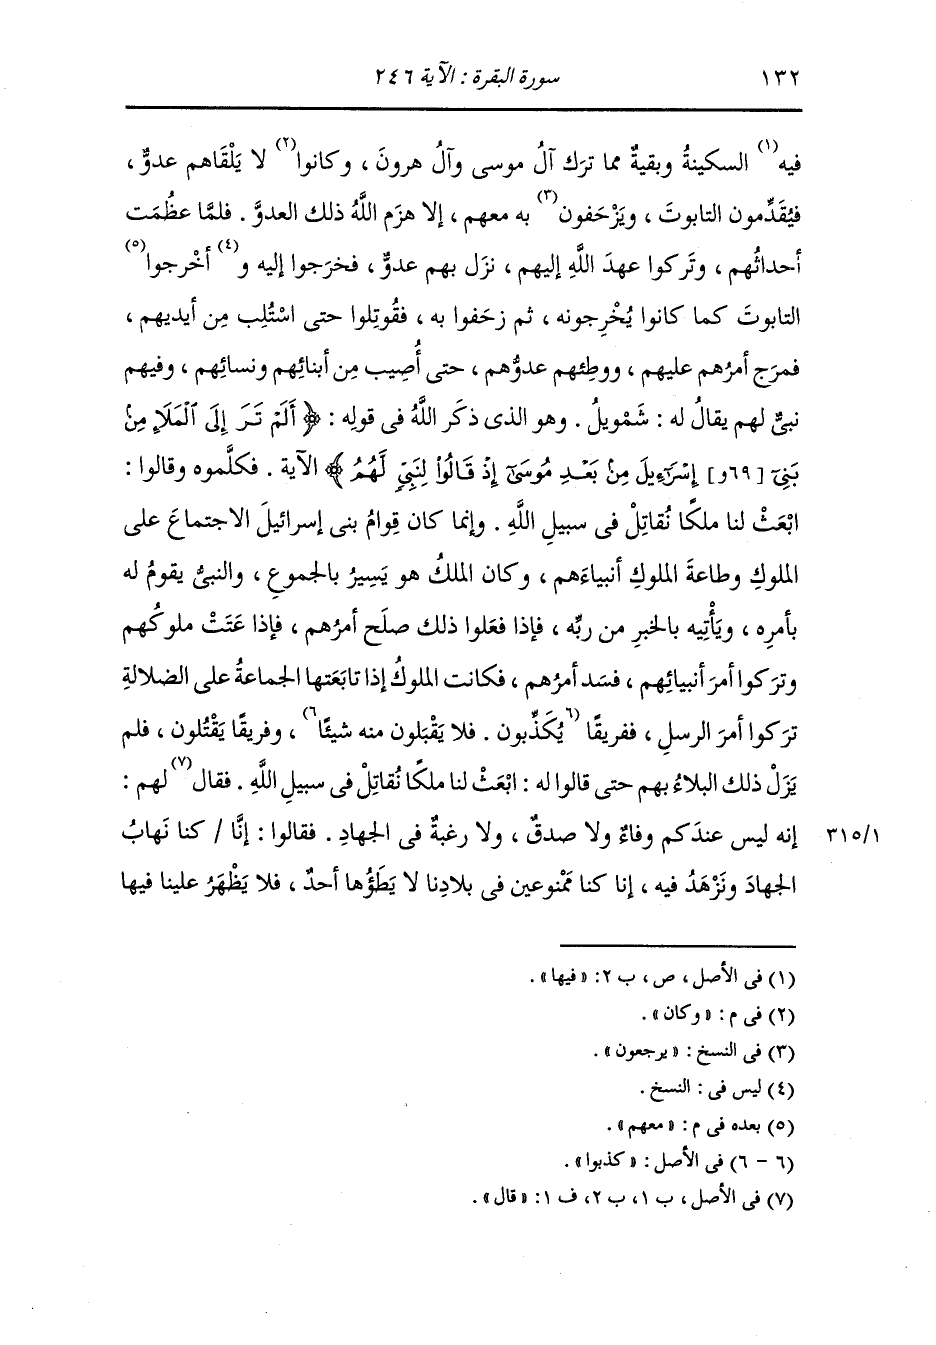 ١٣٢ سورة البقرة : الآية ٢٤٦
فيه(١) السكينةُ وبقيةٌ مما ترَك آلُ موسى وآلُ هرونَ ، وكانوا(٢) لا يَلْقَاهم عدوٌّ ،
فيُقَدِّمون التابوتَ ، ويَزْحَفون(٣) به معهم ، إلا هزَم اللَّهُ ذلك العدوَّ . فلمَّا عظُمَت
أحداثُهم ، وتَركوا عهدَ اللَّهِ إليهم ، نزَل بهم عدوٌّ ، فخرَجوا إليه و(٤) أخْرجوا(٥)
التابوتَ كما كانوا يُخْرِجونه ، ثم زحَفوا به ، فقُوتِلوا حتى اسْتُلِب مِن أيديهم ،
فمرَج أمرُهم عليهم ، ووطِئهم عدوُّهم ، حتى أُصِيب مِن أبنائِهم ونسائِهم ، وفيهم
نبيٌّ لهم يقالُ له : شَمْويلُ . وهو الذى ذكَر اللَّهُ فى قولِه : ﴿ أَلَمْ تَرَ إِلَى ٱلْمَلَإِ مِنۢ
بَنِىٓ [٦٩و] إِسْرَٰٓءِيلَ مِنۢ بَعْدِ مُوسَىٰٓ إِذْ قَالُوا۟ لِنَبِىٍّ لَّهُمُ ﴾ الآية . فكلَّموه وقالوا :
ابْعَثْ لنا ملكًا نُقاتِلْ فى سبيلِ اللَّهِ . وإنما كان قِوامُ بنى إسرائيلَ الاجتماعَ على
الملوكِ وطاعةَ الملوكِ أنبياءَهم ، وكان الملكُ هو يَسِيرُ بالجموعِ ، والنبىُّ يقومُ له
بأمرِه ، ويَأْتِيه بالخبرِ من ربِّه ، فإذا فعَلوا ذلك صلَح أمرُهم ، فإذا عَتَتْ ملوكُهم
وترَكوا أمرَ أنبيائِهم ، فسَد أمرُهم ، فكانت الملوكُ إذا تابَعَتها الجماعةُ على الضلالةِ
ترَكوا أمرَ الرسلِ ، ففريقًا (٦يُكَذِّبون . فلا يَقْبَلون منه شيئًا٦) ، وفريقًا يَقْتُلون ، فلم
يَزَلْ ذلك البلاءُ بهم حتى قالوا له : ابْعَثْ لنا ملكًا نُقاتِلْ فى سبيلِ اللَّهِ . فقال(٧) لهم :
إنه ليس عندَكم وفاءٌ ولا صدقٌ ، ولا رغبةٌ فى الجهادِ . فقالوا : إنَّا / كنا نَهابُ ٣١٥/١
الجهادَ ونَزْهَدُ فيه ، إنا كنا مَمْنوعين فى بلادِنا لا يَطَؤُها أحدٌ ، فلا يَظْهَرُ علينا فيها
(١) فى الأصل ، ص ، ب ٢: « فيها » .
(٢) فى م : « وكان » .
(٣) فى النسخ : « يرجعون » .
(٤) ليس فى : النسخ .
(٥) بعده فى م : « معهم » .
(٦ - ٦) فى الأصل : « كذبوا » .
(٧) فى الأصل ، ب ١، ب ٢، ف ١: « قال » .